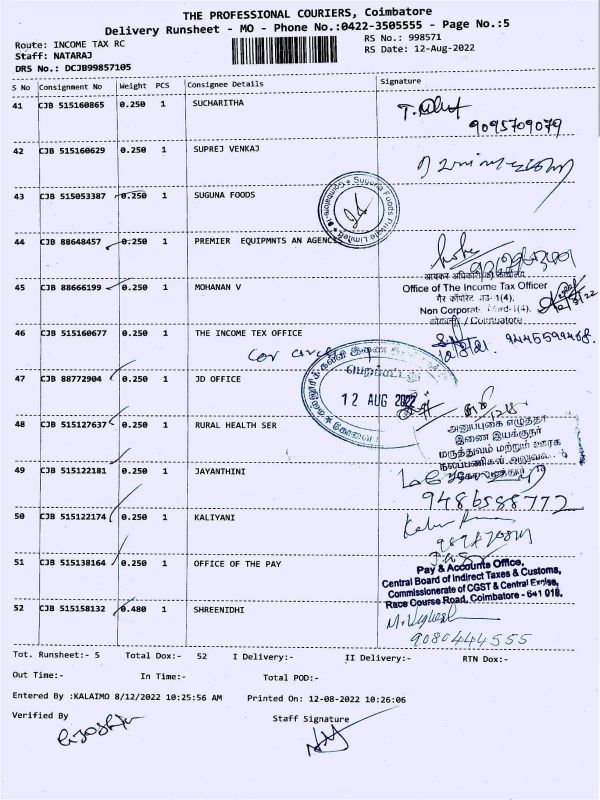 THE PROFESSIONAL COURIERS, Coimbatore
Delivery Runsheet - MO - Phone No.:0422-3505555 - Page No.:5
Route: INCOME TAX RC
RS No.: 998571
Staff: NATARAJ
RS Date: 12-Aug-2022
DRS No.: DCJB99857105
S No Consignment No Weight PCS Consignee Details Signature
41 CJB 515160865 0.250 1 SUCHARITHA
9095709079
42 CJB 515160629 0.250 1 SUPREJ VENKAJ
43 CJB 515053387 0.250 1 SUGUNA FOODS
Suguna Foods Private Limited
44 CJB 88648457 0.250 1 PREMIER EQUIPMNTS AN AGENCIE
आयकर अधिकारी का कार्यालय
45 CJB 88666199 0.250 1 MOHANAN V
Office of The Income Tax Officer
गैर कॉर्पोरेट वार्ड-1(4),
Non Corporate Ward-1(4),
कोयम्बत्तूर / Coimbatore
46 CJB 515160677 0.250 1 THE INCOME TEX OFFICE
9445599468
47 CJB 88772904 0.250 1 JD OFFICE
12 AUG 2022
கோவை
48 CJB 515127637 0.250 1 RURAL HEALTH SER
இணை இயக்குநர்
மருத்துவம் மற்றும் ஊரக
49 CJB 515122181 0.250 1 JAYANTHINI
9486588772
50 CJB 515122174 0.250 1 KALIYANI
51 CJB 515138164 0.250 1 OFFICE OF THE PAY
Pay & Accounts Office,
Central Board of Indirect Taxes & Customs,
Commissionerate of CGST & Central Excise,
Race Course Road, Coimbatore - 641 018.
52 CJB 515158132 0.480 1 SHREENIDHI
9080444555
Tot. Runsheet:- 5 Total Dox:- 52 I Delivery:- II Delivery:- RTN Dox:-
Out Time:- In Time:- Total POD:-
Entered By :KALAIMO 8/12/2022 10:25:56 AM Printed On: 12-08-2022 10:26:06
Verified By
Staff Signature